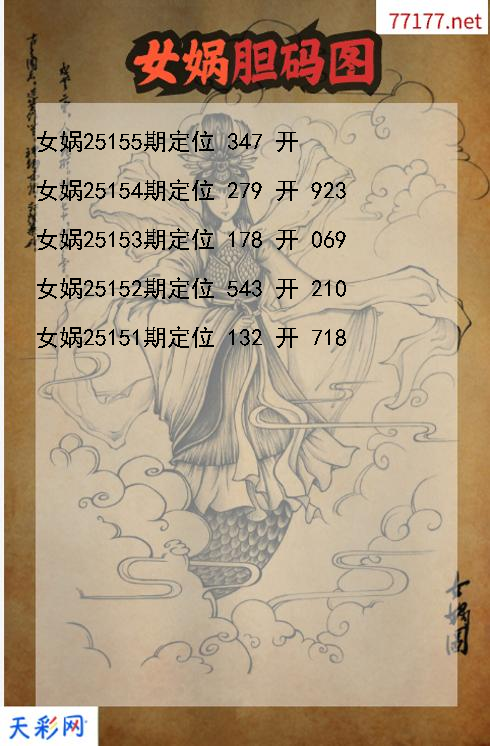 77177.net
女娲胆码图
女娲25155期定位 347 开
女娲25154期定位 279 开 923
女娲25153期定位 178 开 069
女娲25152期定位 543 开 210
女娲25151期定位 132 开 718
女娲图
天彩网